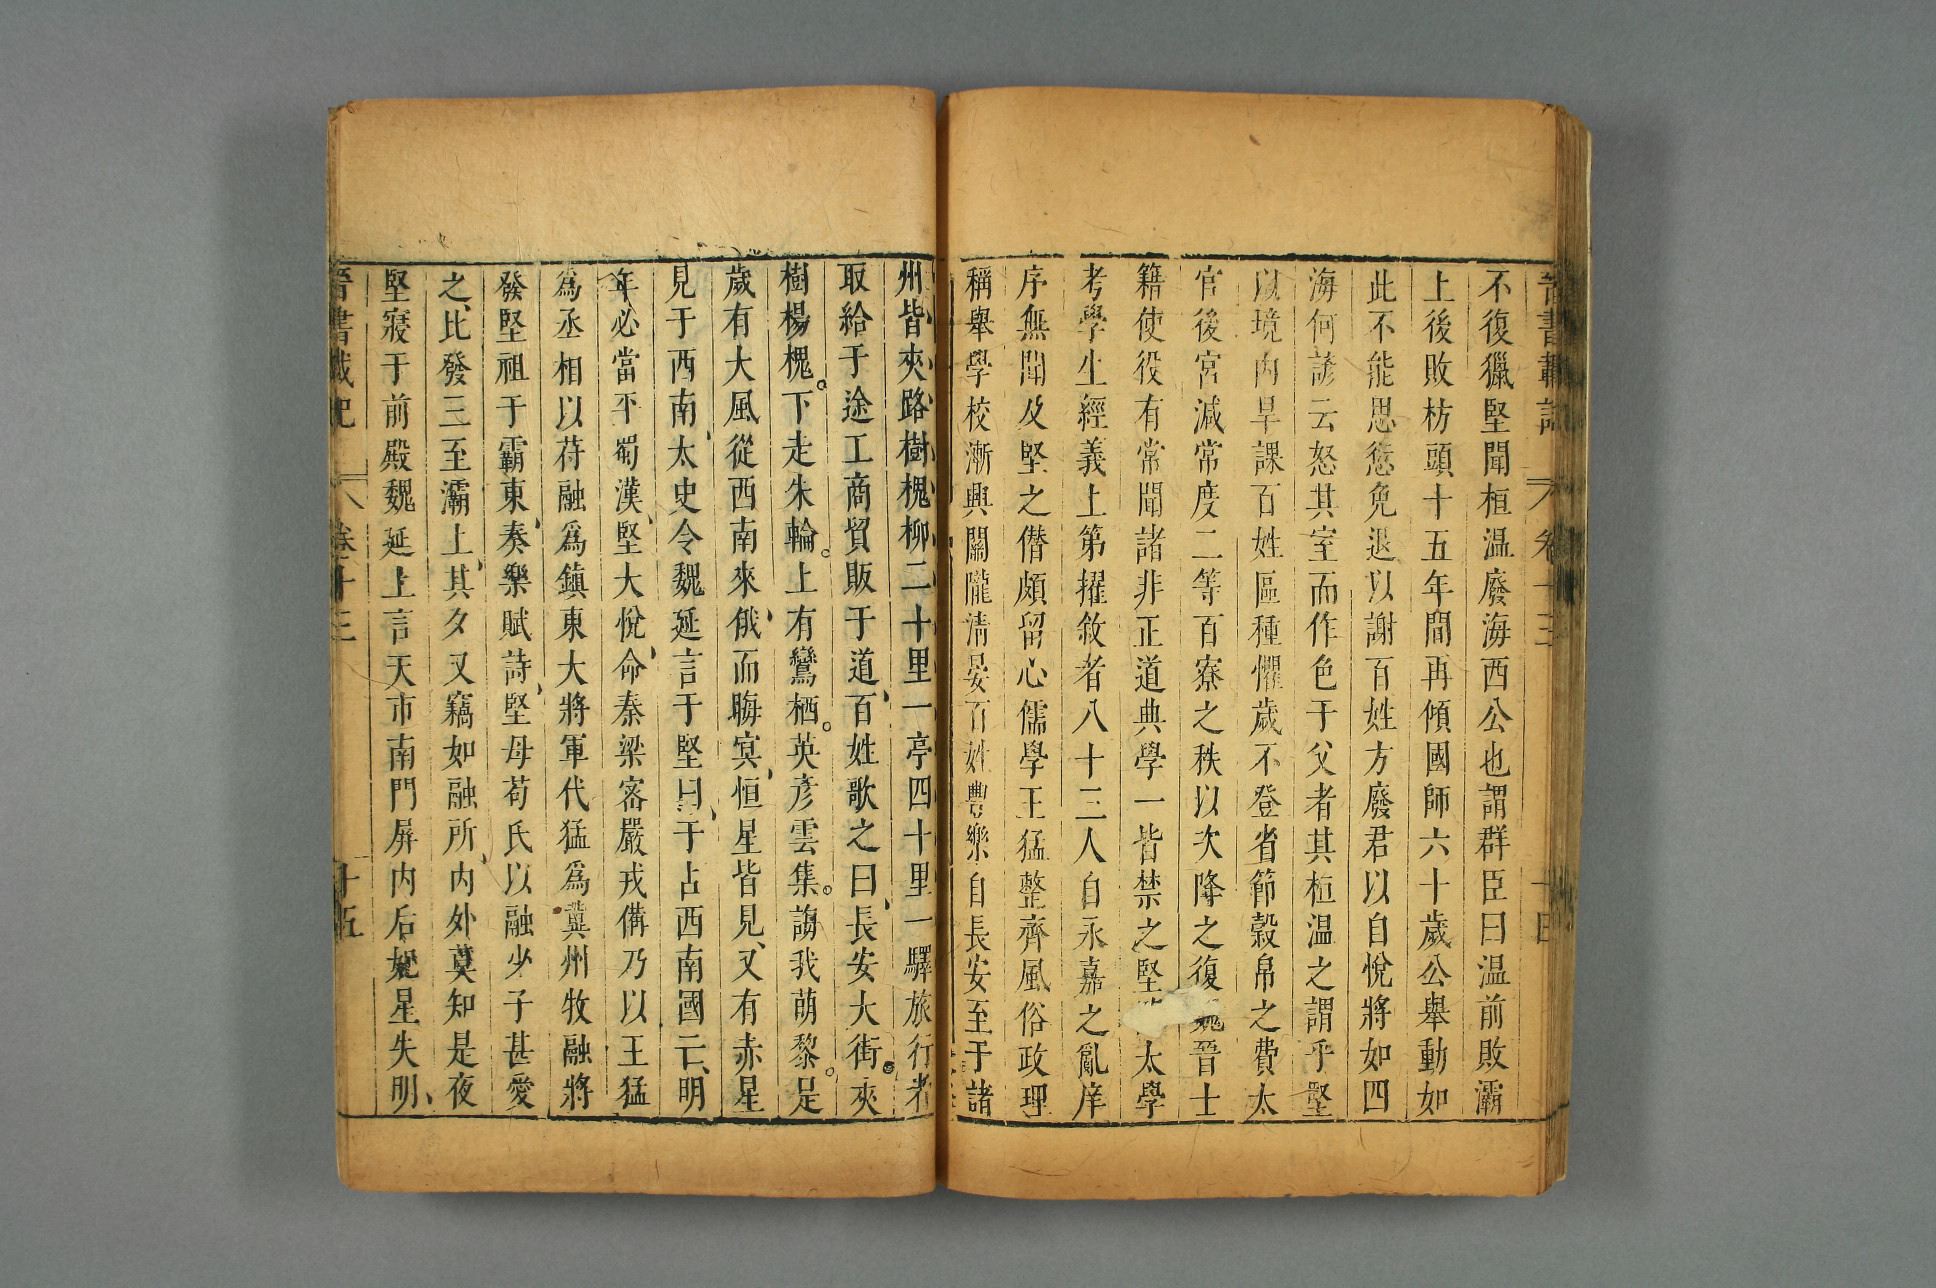 晉書載記 卷十三 十四
不復獵堅聞桓温廢海西公也謂群臣曰温前敗灞
上後敗枋頭十五年間再傾國師六十歲公舉動如
此不能思愆免退以謝百姓方廢君以自悅將如四
海何諺云怒其室而作色于父者其桓温之謂乎堅
以境内旱課百姓區種懼歲不登省節穀帛之費太
官後宮減常度二等百寮之秩以次降之復魏晉士
籍使役有常聞諸非正道典學一皆禁之堅太學
考學生經義上第擢敘者八十三人自永嘉之亂庠
序無聞及堅之僣頗留心儒學王猛整齊風俗政理
稱舉學校漸興關隴清晏百姓豊樂自長安至于諸
州皆夾路樹槐柳二十里一亭四十里一驛旅行者
取給于途工商貿販于道百姓歌之曰長安大街夾
樹楊槐。下走朱輪。上有鸞栖。英彦雲集。誨我萌黎。是
歲有大風從西南來俄而晦㝠恒星皆見又有赤星
見于西南太史令魏延言于堅曰于占西南國亡明
年必當平蜀漢堅大悅命秦梁宻嚴戎備乃以王猛
爲丞相以苻融爲鎮東大將軍代猛爲冀州牧融將
發堅祖于霸東奏樂賦詩堅母苟氏以融少子甚愛
之比發三至灞上其夕又竊如融所内外莫知是夜
堅寢于前殿魏延上言天市南門屏内后妃星失明
晉書載記 卷十三 十五